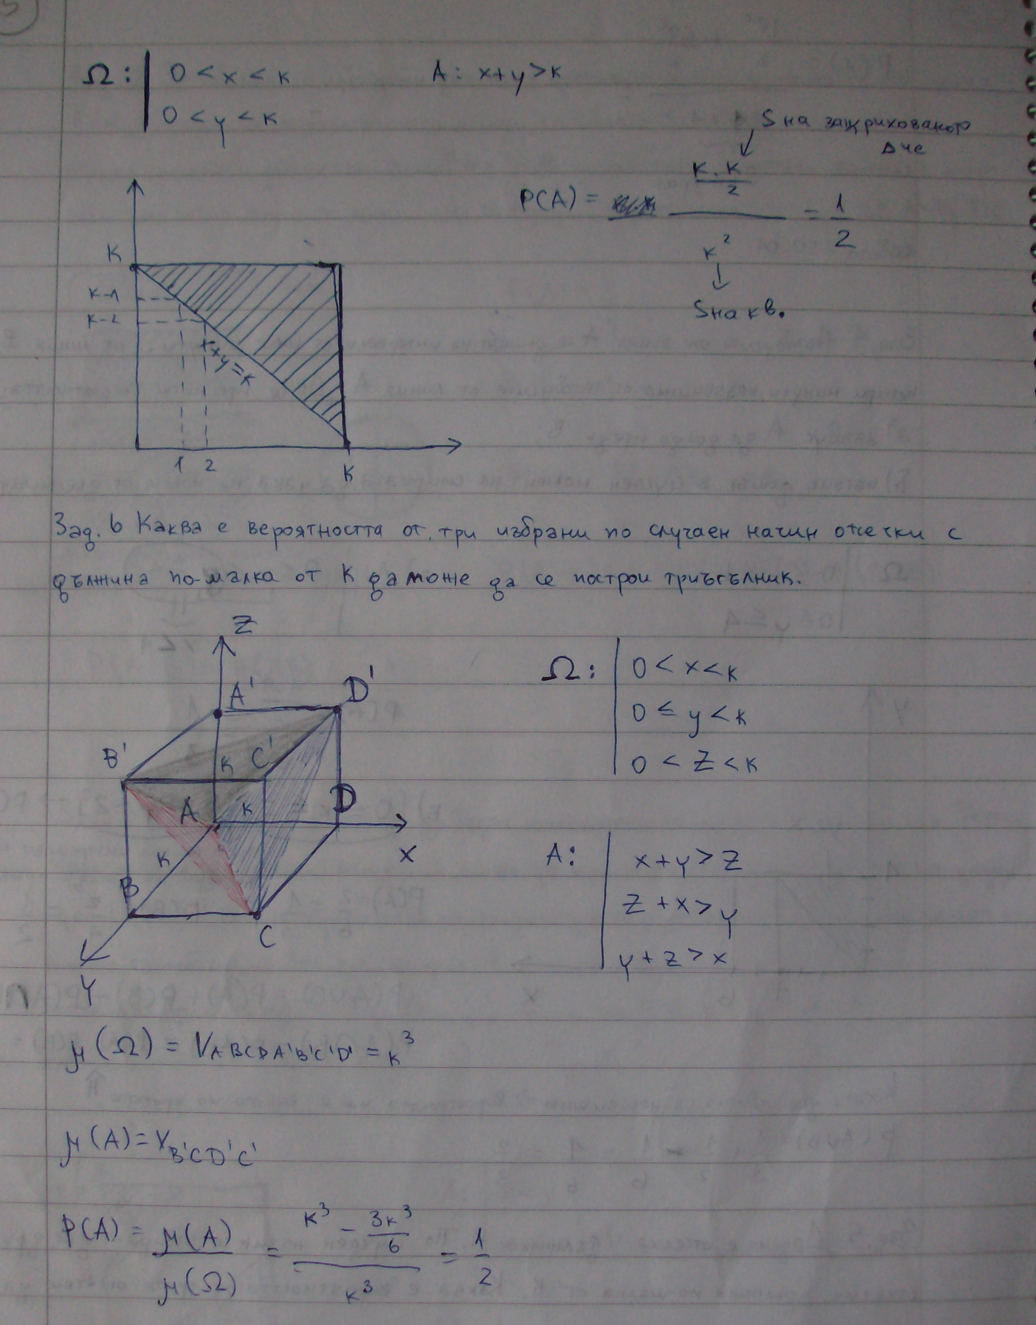 Ω: 0 < x < k
0 < y < k
A: x+y>k
S на защрихованот
Δче
P(A) = (k.k/2)/k² = 1/2
S на кв.
k
k-1
k-2
x+y=k
1 2
k
Зад. 6 Каква е вероятността от три избрани по случаен начин отсечки с
дължина по-малка от k да може да се построи триъгълник.
Z
A' D'
B' C'
k
A k D
k
X
B
C
Y
Ω: 0 < x < k
0 ≤ y < k
0 < Z < k
A: x+y>Z
Z+x>y
y+z>x
μ(Ω) = V ABCDA'B'C'D' = k³
μ(A) = V B'CD'C'
P(A) = μ(A)/μ(Ω) = (k³ - 3k³/6)/k³ = 1/2